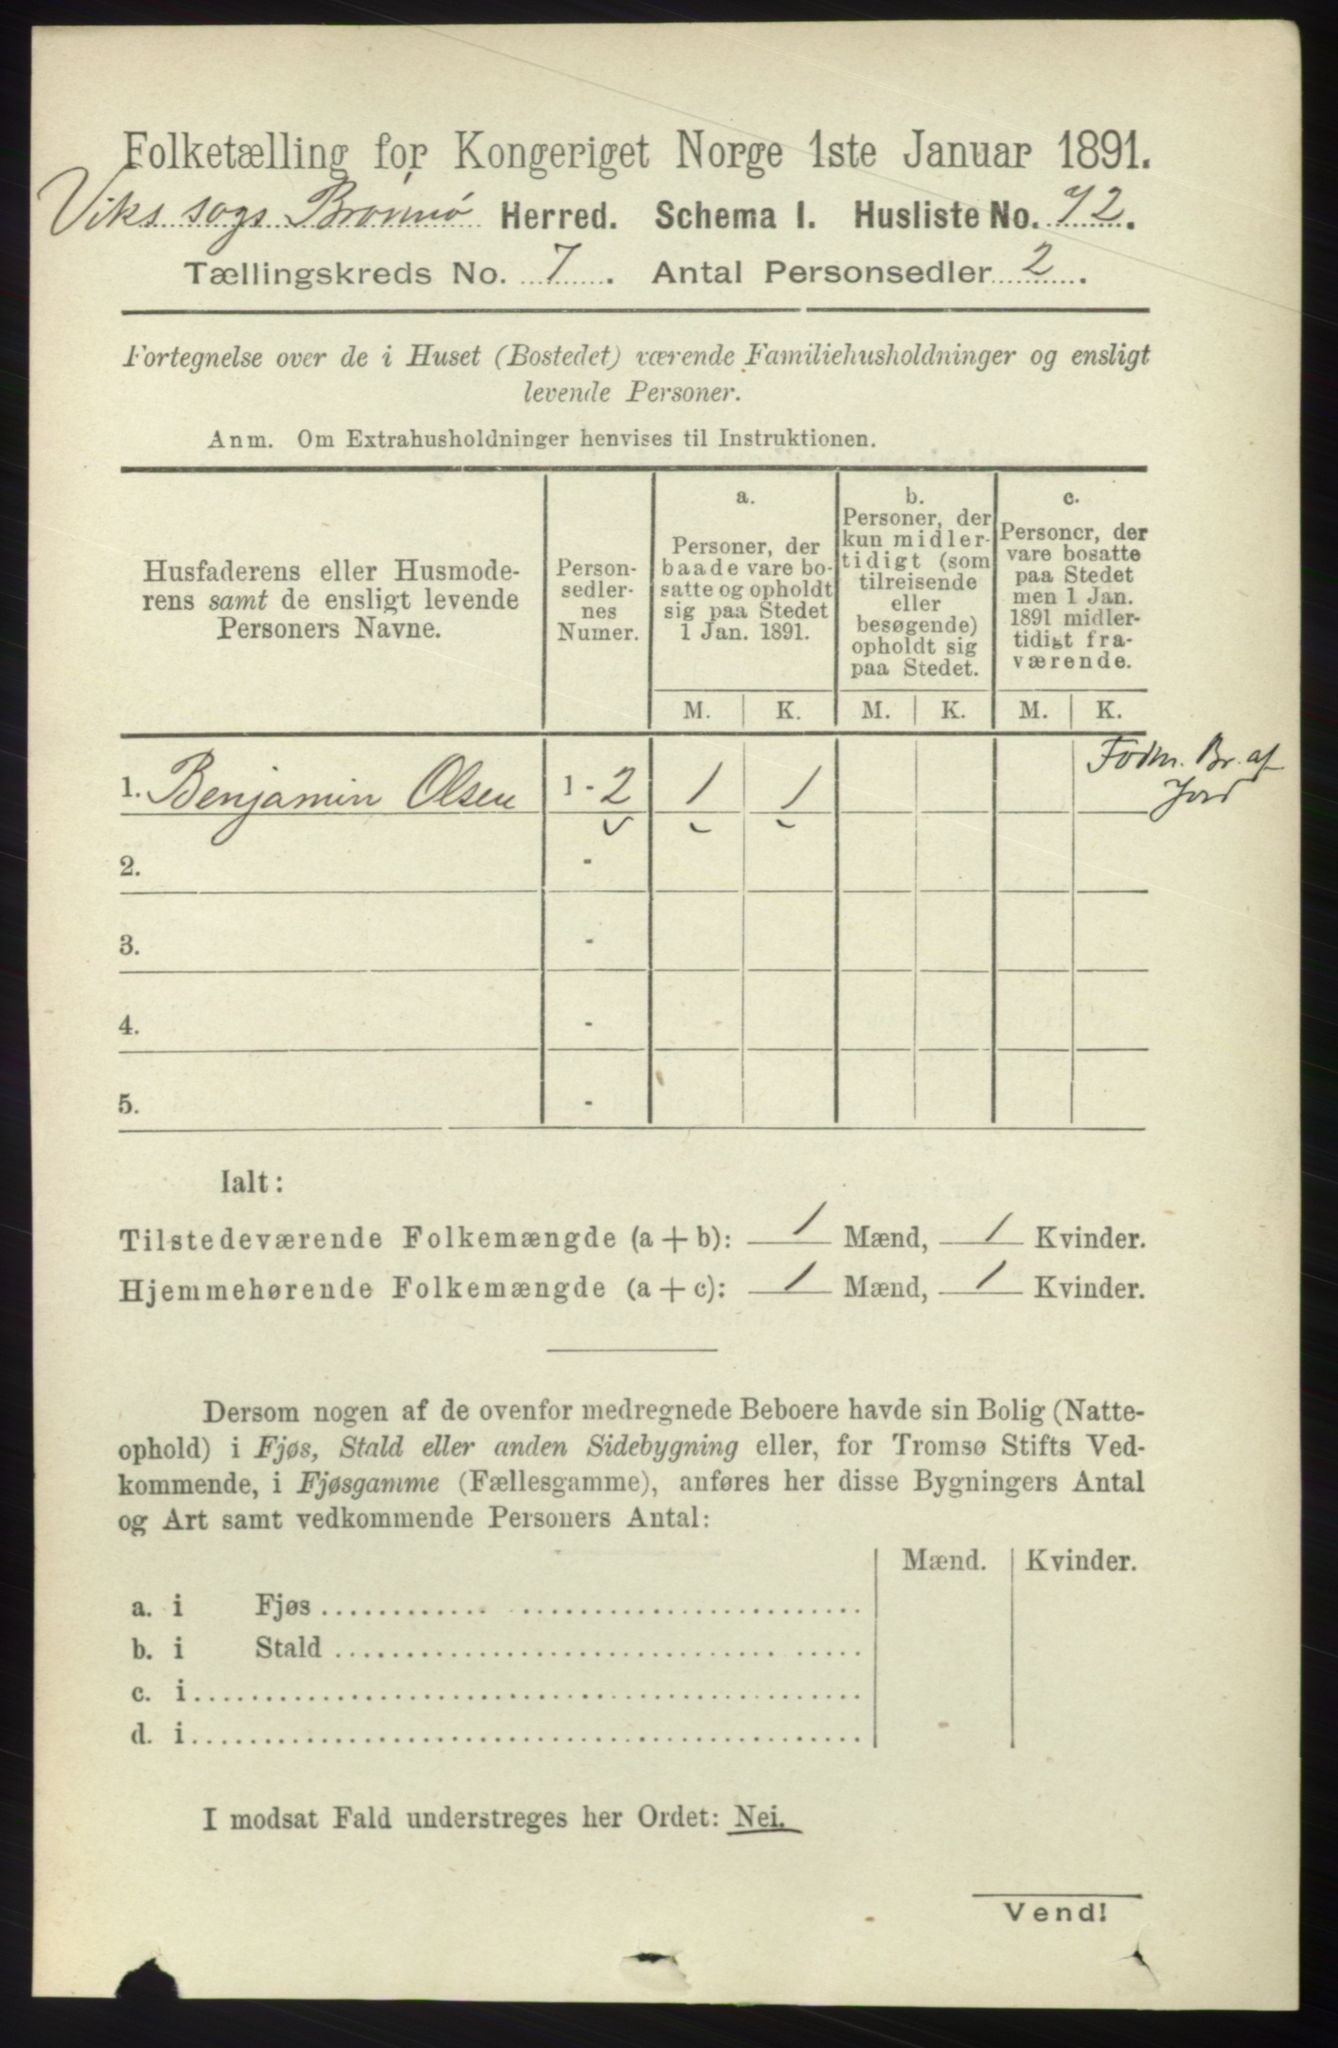 Folketælling for Kongeriget Norge 1ste Januar 1891.
Viks sogs Brønnø Herred. Schema I. Husliste No. 72.
Tællingskreds No. 7. Antal Personsedler 2.
Fortegnelse over de i Huset (Bostedet) værende Familiehusholdninger og ensligt
levende Personer.
Anm. Om Extrahusholdninger henvises til Instruktionen.
Husfaderens eller Husmode-
rens samt de ensligt levende
Personers Navne.
Person-
sedler-
nes
Numer.
a.
Personer, der
baade vare bo-
satte og opholdt
sig paa Stedet
1 Jan. 1891.
b.
Personer, der
kun midler-
tidigt (som
tilreisende
eller
besøgende)
opholdt sig
paa Stedet.
c.
Personer, der
vare bosatte
paa Stedet
men 1 Jan.
1891 midler-
tidigt fra-
værende.
M. K. M. K. M. K.
1. Benjamin Olsen 1 - 2 1 1
Br. af
Jord
2. -
3. -
4. -
5. -
Ialt:
Tilstedeværende Folkemængde (a + b): 1 Mænd, 1 Kvinder.
Hjemmehørende Folkemængde (a + c): 1 Mænd, 1 Kvinder.
Dersom nogen af de ovenfor medregnede Beboere havde sin Bolig (Natte-
ophold) i Fjøs, Stald eller anden Sidebygning eller, for Tromsø Stifts Ved-
kommende, i Fjøsgamme (Fællesgamme), anføres her disse Bygningers Antal
og Art samt vedkommende Personers Antal:
Mænd. Kvinder.
a. i Fjøs
b. i Stald
c. i
d. i
I modsat Fald understreges her Ordet: Nei.
Vend!